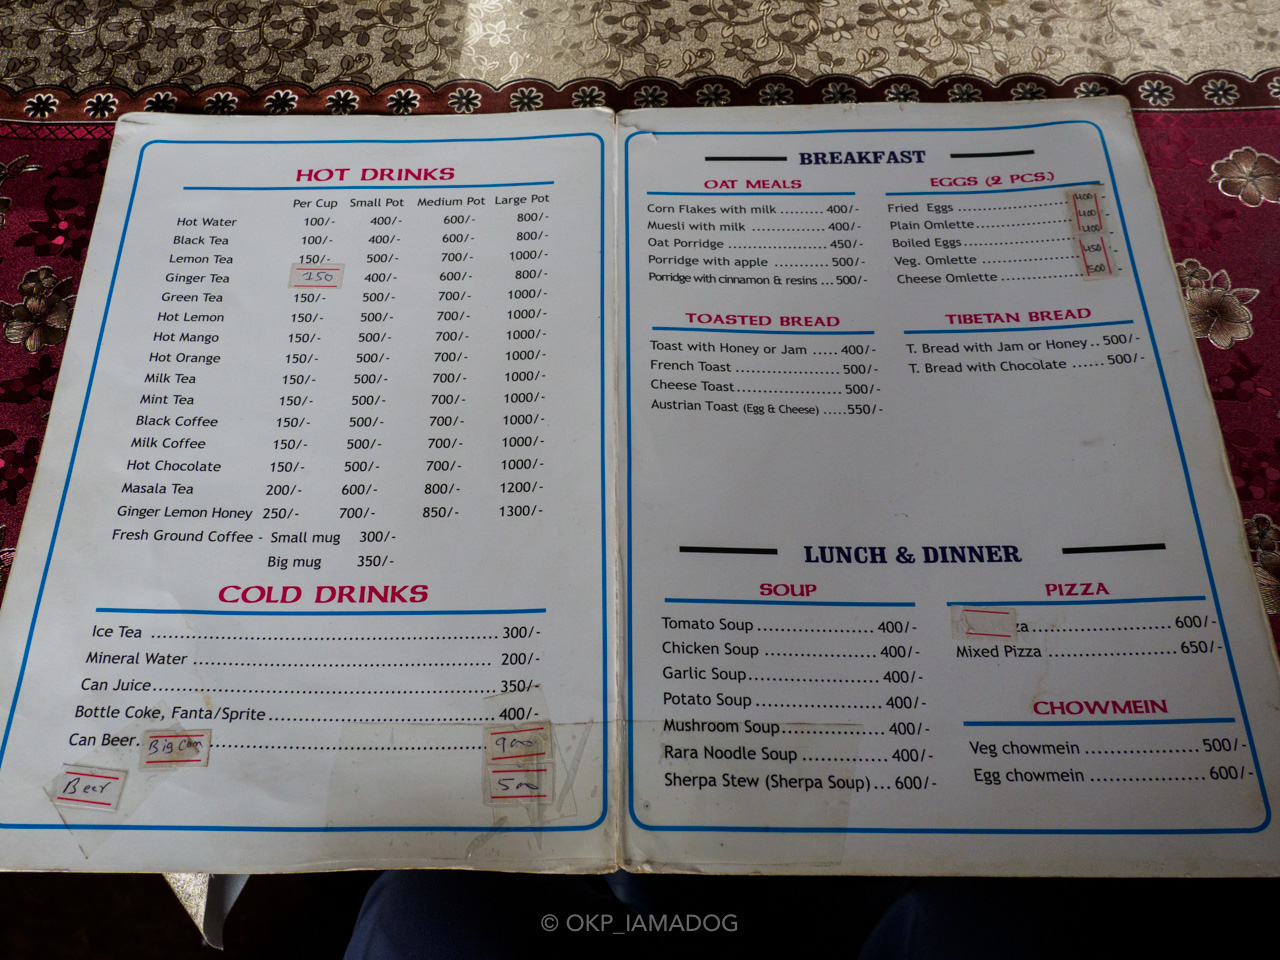 HOT DRINKS
Per Cup Small Pot Medium Pot Large Pot
Hot Water 100/- 400/- 600/- 800/-
Black Tea 100/- 400/- 600/- 800/-
Lemon Tea 150/- 500/- 700/- 1000/-
Ginger Tea 150 400/- 600/- 800/-
Green Tea 150/- 500/- 700/- 1000/-
Hot Lemon 150/- 500/- 700/- 1000/-
Hot Mango 150/- 500/- 700/- 1000/-
Hot Orange 150/- 500/- 700/- 1000/-
Milk Tea 150/- 500/- 700/- 1000/-
Mint Tea 150/- 500/- 700/- 1000/-
Black Coffee 150/- 500/- 700/- 1000/-
Milk Coffee 150/- 500/- 700/- 1000/-
Hot Chocolate 150/- 500/- 700/- 1000/-
Masala Tea 200/- 600/- 800/- 1200/-
Ginger Lemon Honey 250/- 700/- 850/- 1300/-
Fresh Ground Coffee - Small mug 300/-
Big mug 350/-
COLD DRINKS
Ice Tea 300/-
Mineral Water 200/-
Can Juice 350/-
Bottle Coke, Fanta/Sprite 400/-
Can Beer. Big Can 900
Beer 500
BREAKFAST
OAT MEALS
Corn Flakes with milk 400/-
Muesli with milk 400/-
Oat Porridge 450/-
Porridge with apple 500/-
Porridge with cinnamon & resins 500/-
EGGS (2 PCS.)
Fried Eggs 400
Plain Omlette 400
Boiled Eggs 400
Veg. Omlette 450
Cheese Omlette 500
TOASTED BREAD
Toast with Honey or Jam 400/-
French Toast 500/-
Cheese Toast 500/-
Austrian Toast (Egg & Cheese) 550/-
TIBETAN BREAD
T. Bread with Jam or Honey 500/-
T. Bread with Chocolate 500/-
LUNCH & DINNER
SOUP
Tomato Soup 400/-
Chicken Soup 400/-
Garlic Soup 400/-
Potato Soup 400/-
Mushroom Soup 400/-
Rara Noodle Soup 400/-
Sherpa Stew (Sherpa Soup) 600/-
PIZZA
za 600/-
Mixed Pizza 650/-
CHOWMEIN
Veg chowmein 500/-
Egg chowmein 600/-
© OKP_IAMADOG